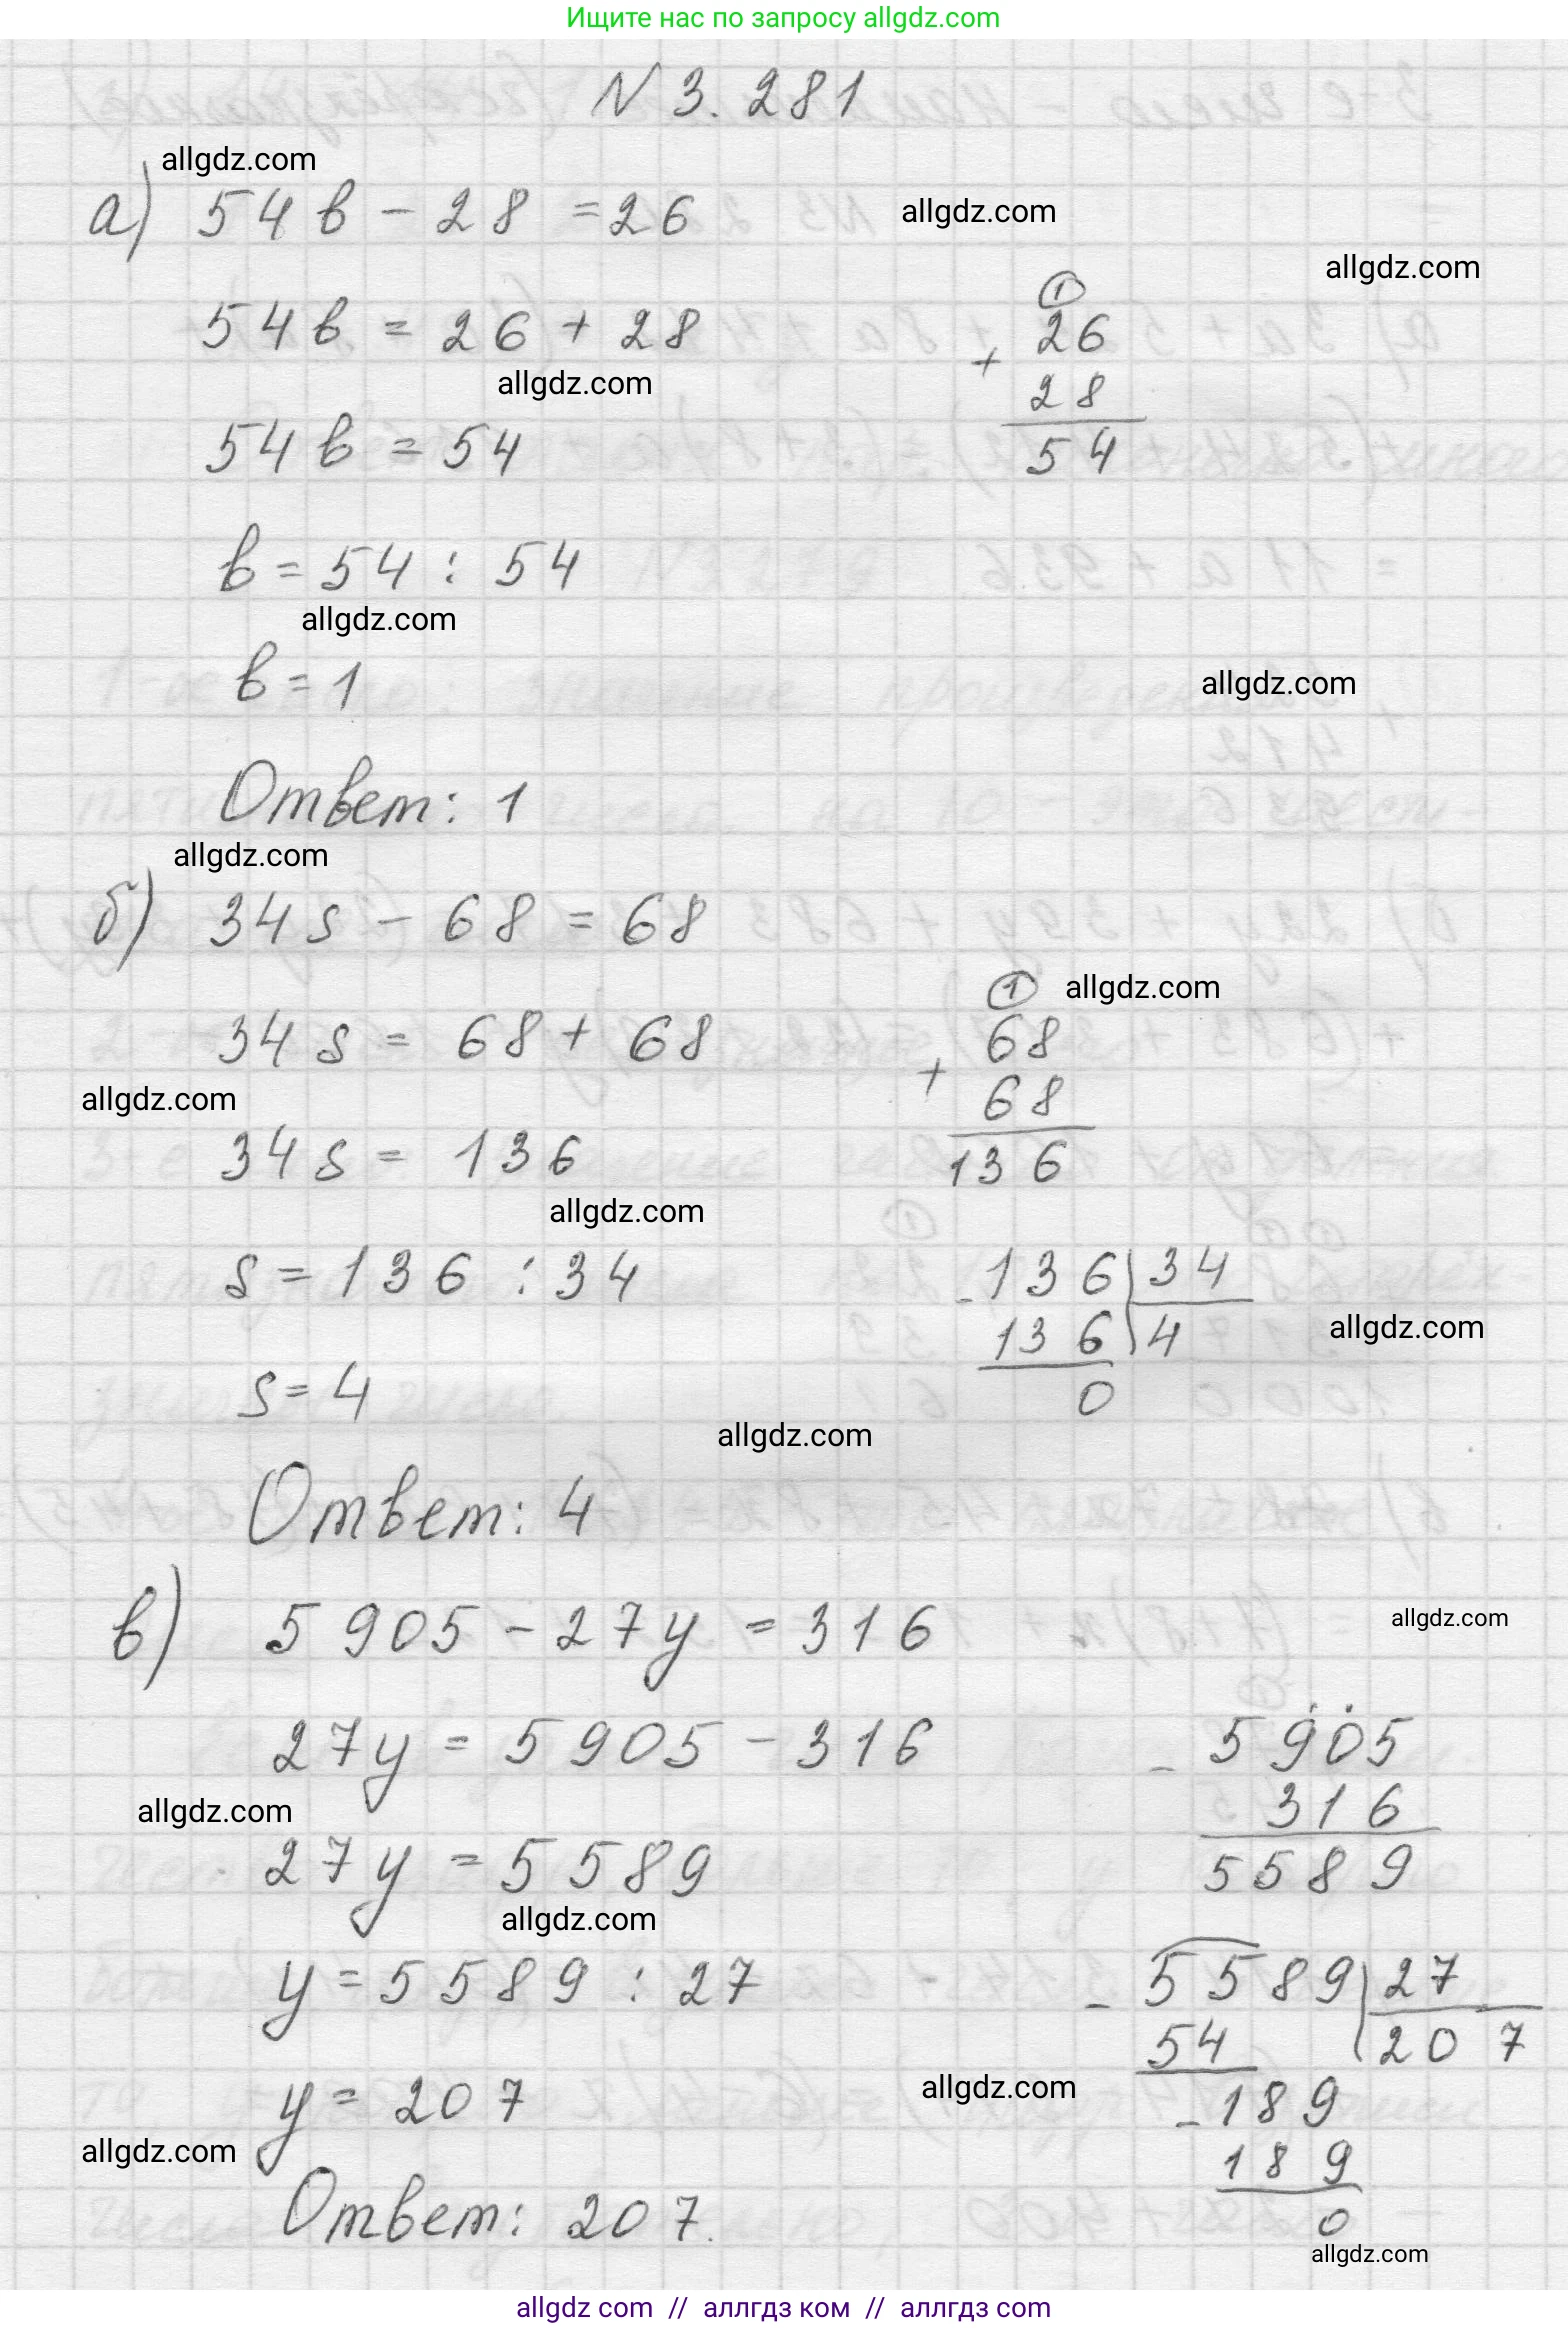 Ищите нас по запросу allgdz.com
N 3.281
allgdz.com
а) 54в - 28 = 26
allgdz.com
allgdz.com
54в = 26 + 28
1
26
+
28
54
allgdz.com
54в = 54
в = 54 : 54
allgdz.com
в = 1
allgdz.com
Ответ: 1
allgdz.com
б) 34s - 68 = 68
34s = 68 + 68
1
allgdz.com
68
+
68
136
allgdz.com
34s = 136
allgdz.com
s = 136 : 34
- 136 | 34
136 | 4
0
allgdz.com
s = 4
allgdz.com
Ответ: 4
в) 5905 - 27y = 316
allgdz.com
27y = 5905 - 316
- 5905
316
5589
allgdz.com
27y = 5589
allgdz.com
y = 5589 : 27
- 5589 | 27
54 | 207
- 189
189
0
y = 207
allgdz.com
allgdz.com
Ответ: 207.
allgdz.com
allgdz com // аллгдз ком // аллгдз com